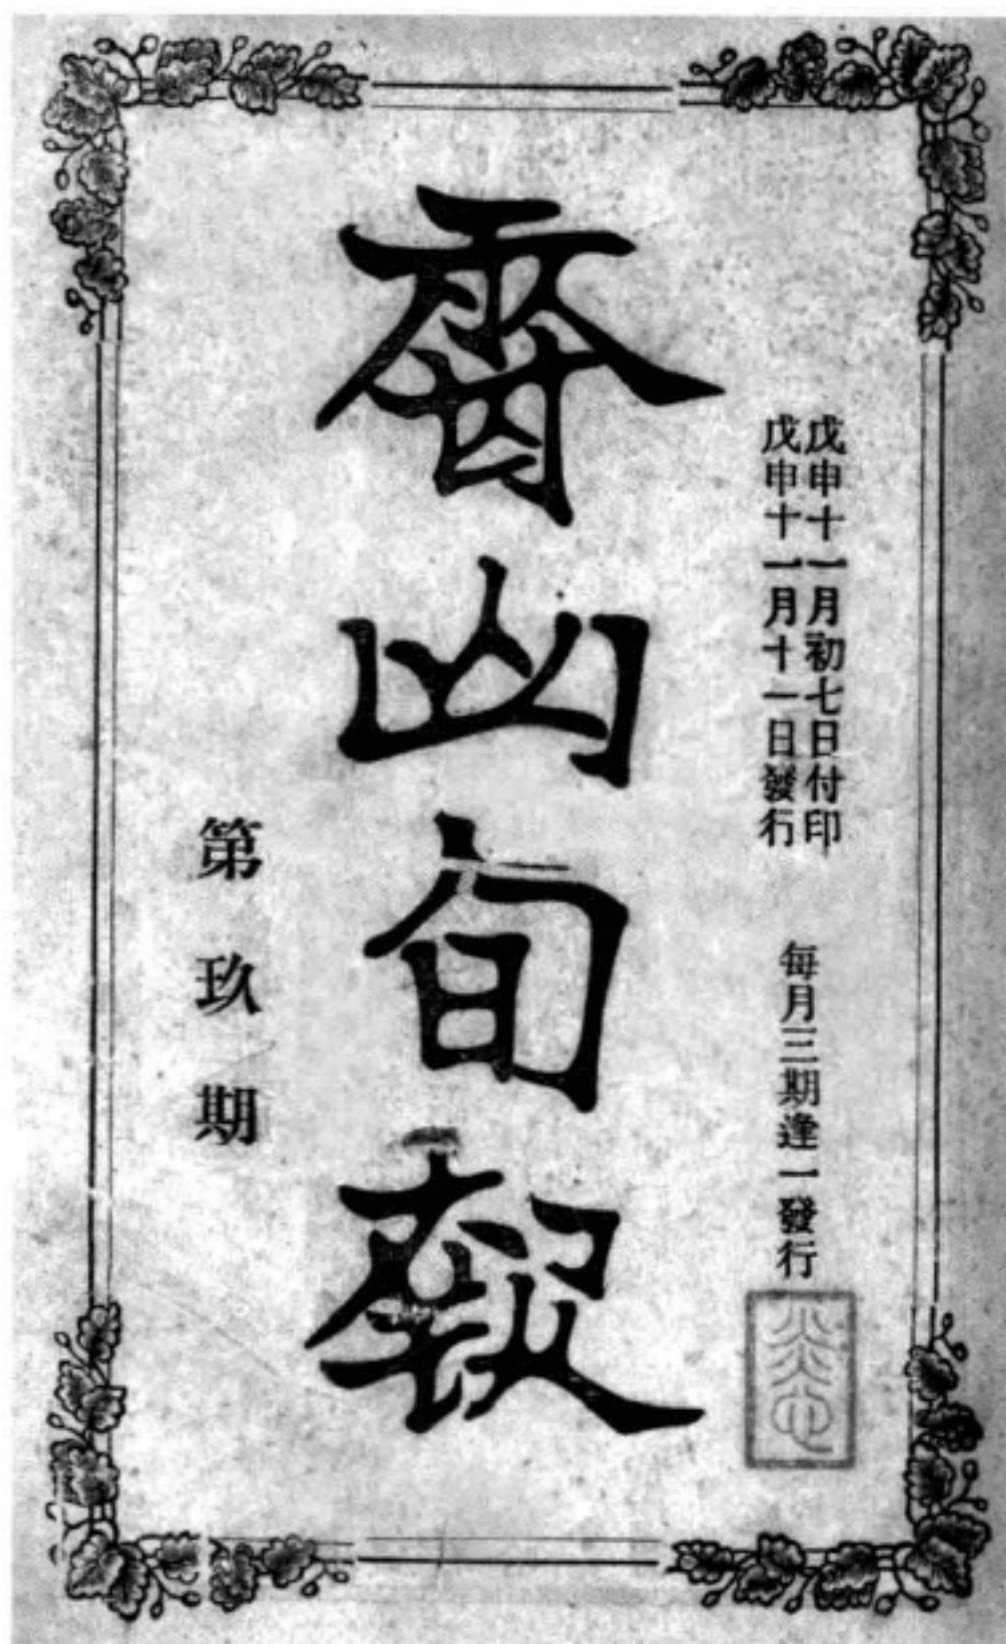 戊申十一月初七日付印
戊申十一月十一日發行
每月三期逢一發行
香山旬報
第玖期